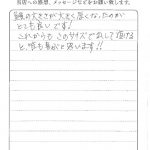 当店への感想、メッセージなどをお願い致します。
鰻の大きさが大きく厚くなったのが
とても良いです!
これからもこのサイズで出して頂ける
と、味も良いと思います!!